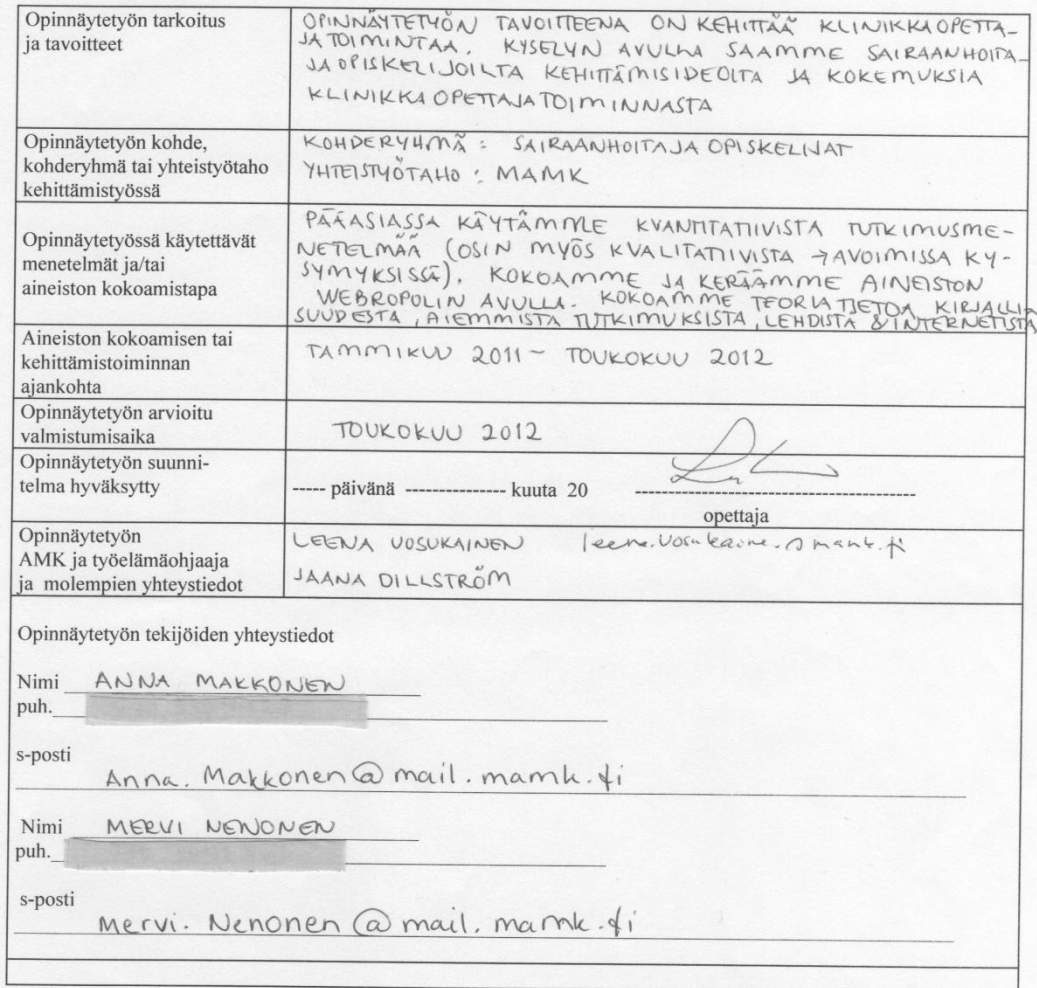 Opinnäytetyön tarkoitus
ja tavoitteet
OPINNÄYTETYÖN TAVOITTEENA ON KEHITTÄÄ KLINIKKAOPETTA-
JATOIMINTAA. KYSELYN AVULLA SAAMME SAIRAANHOITA-
JAOPISKELIJOILTA KEHITTÄMISIDEOITA JA KOKEMUKSIA
KLINIKKAOPETTAJATOIMINNASTA
Opinnäytetyön kohde,
kohderyhmä tai yhteistyötaho
kehittämistyössä
KOHDERYHMÄ: SAIRAANHOITAJAOPISKELIJAT
YHTEISTYÖTAHO: MAMK
Opinnäytetyössä käytettävät
menetelmät ja/tai
aineiston kokoamistapa
PÄÄASIASSA KÄYTÄMME KVANTITATIIVISTA TUTKIMUSME-
NETELMÄÄ (OSIN MYÖS KVALITATIIVISTA → AVOIMISSA KY-
SYMYKSISSÄ). KOKOAMME JA KERÄÄMME AINEISTON
WEBROPOLIN AVULLA. KOKOAMME TEORIATIETOA KIRJALLI-
SUUDESTA, AIEMMISTA TUTKIMUKSISTA, LEHDISTÄ & INTERNETISTÄ
Aineiston kokoamisen tai
kehittämistoiminnan
ajankohta
TAMMIKUU 2011 - TOUKOKUU 2012
Opinnäytetyön arvioitu
valmistumisaika
TOUKOKUU 2012
Opinnäytetyön suunni-
telma hyväksytty
----- päivänä --------------- kuuta 20 ------------------------------------------
opettaja
Opinnäytetyön
AMK ja työelämäohjaaja
ja molempien yhteystiedot
LEENA UOSUKAINEN
JAANA DILLSTRÖM
Opinnäytetyön tekijöiden yhteystiedot
Nimi ANNA MAKKONEN
puh.
s-posti
Anna.Makkonen@mail.mamk.fi
Nimi MERVI NENONEN
puh.
s-posti
Mervi.Nenonen@mail.mamk.fi